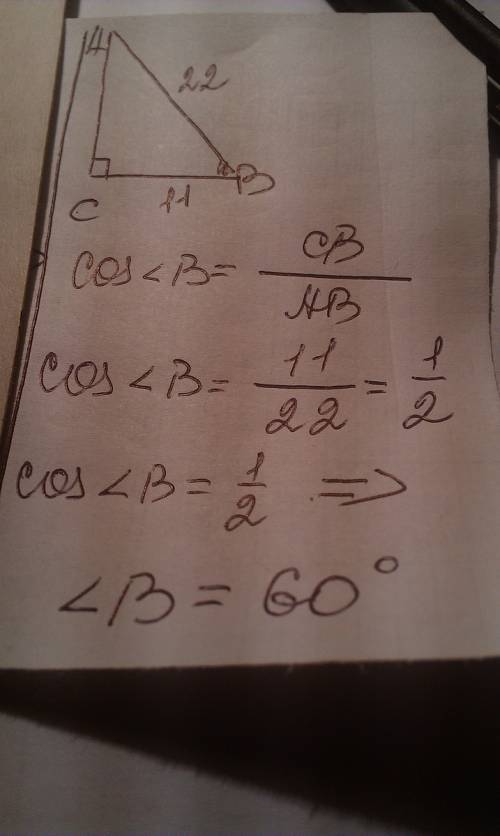 A
22
B
C
11
cos∠B = CB/AB
cos∠B = 11/22 = 1/2
cos∠B = 1/2 ⇒
∠B = 60°